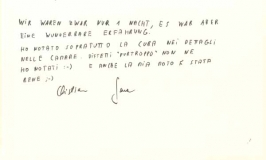 WIR WAREN ZWAR NUR 1 NACHT, ES WAR ABER
EINE WUNDERBARE ERFAHRUNG.
HO NOTATO SOPRATUTTO LA CURA NEI DETTAGLI
NELLE CAMERE. DIFETTI "PURTROPPO" NON NE
HO NOTATI :-) E ANCHE LA MIA MOTO È STATA
BENE ;-)